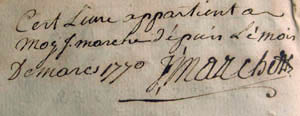 Cert Livre appartient a
Moy J. marche depuis Le mois
De mars 1770 J. marche